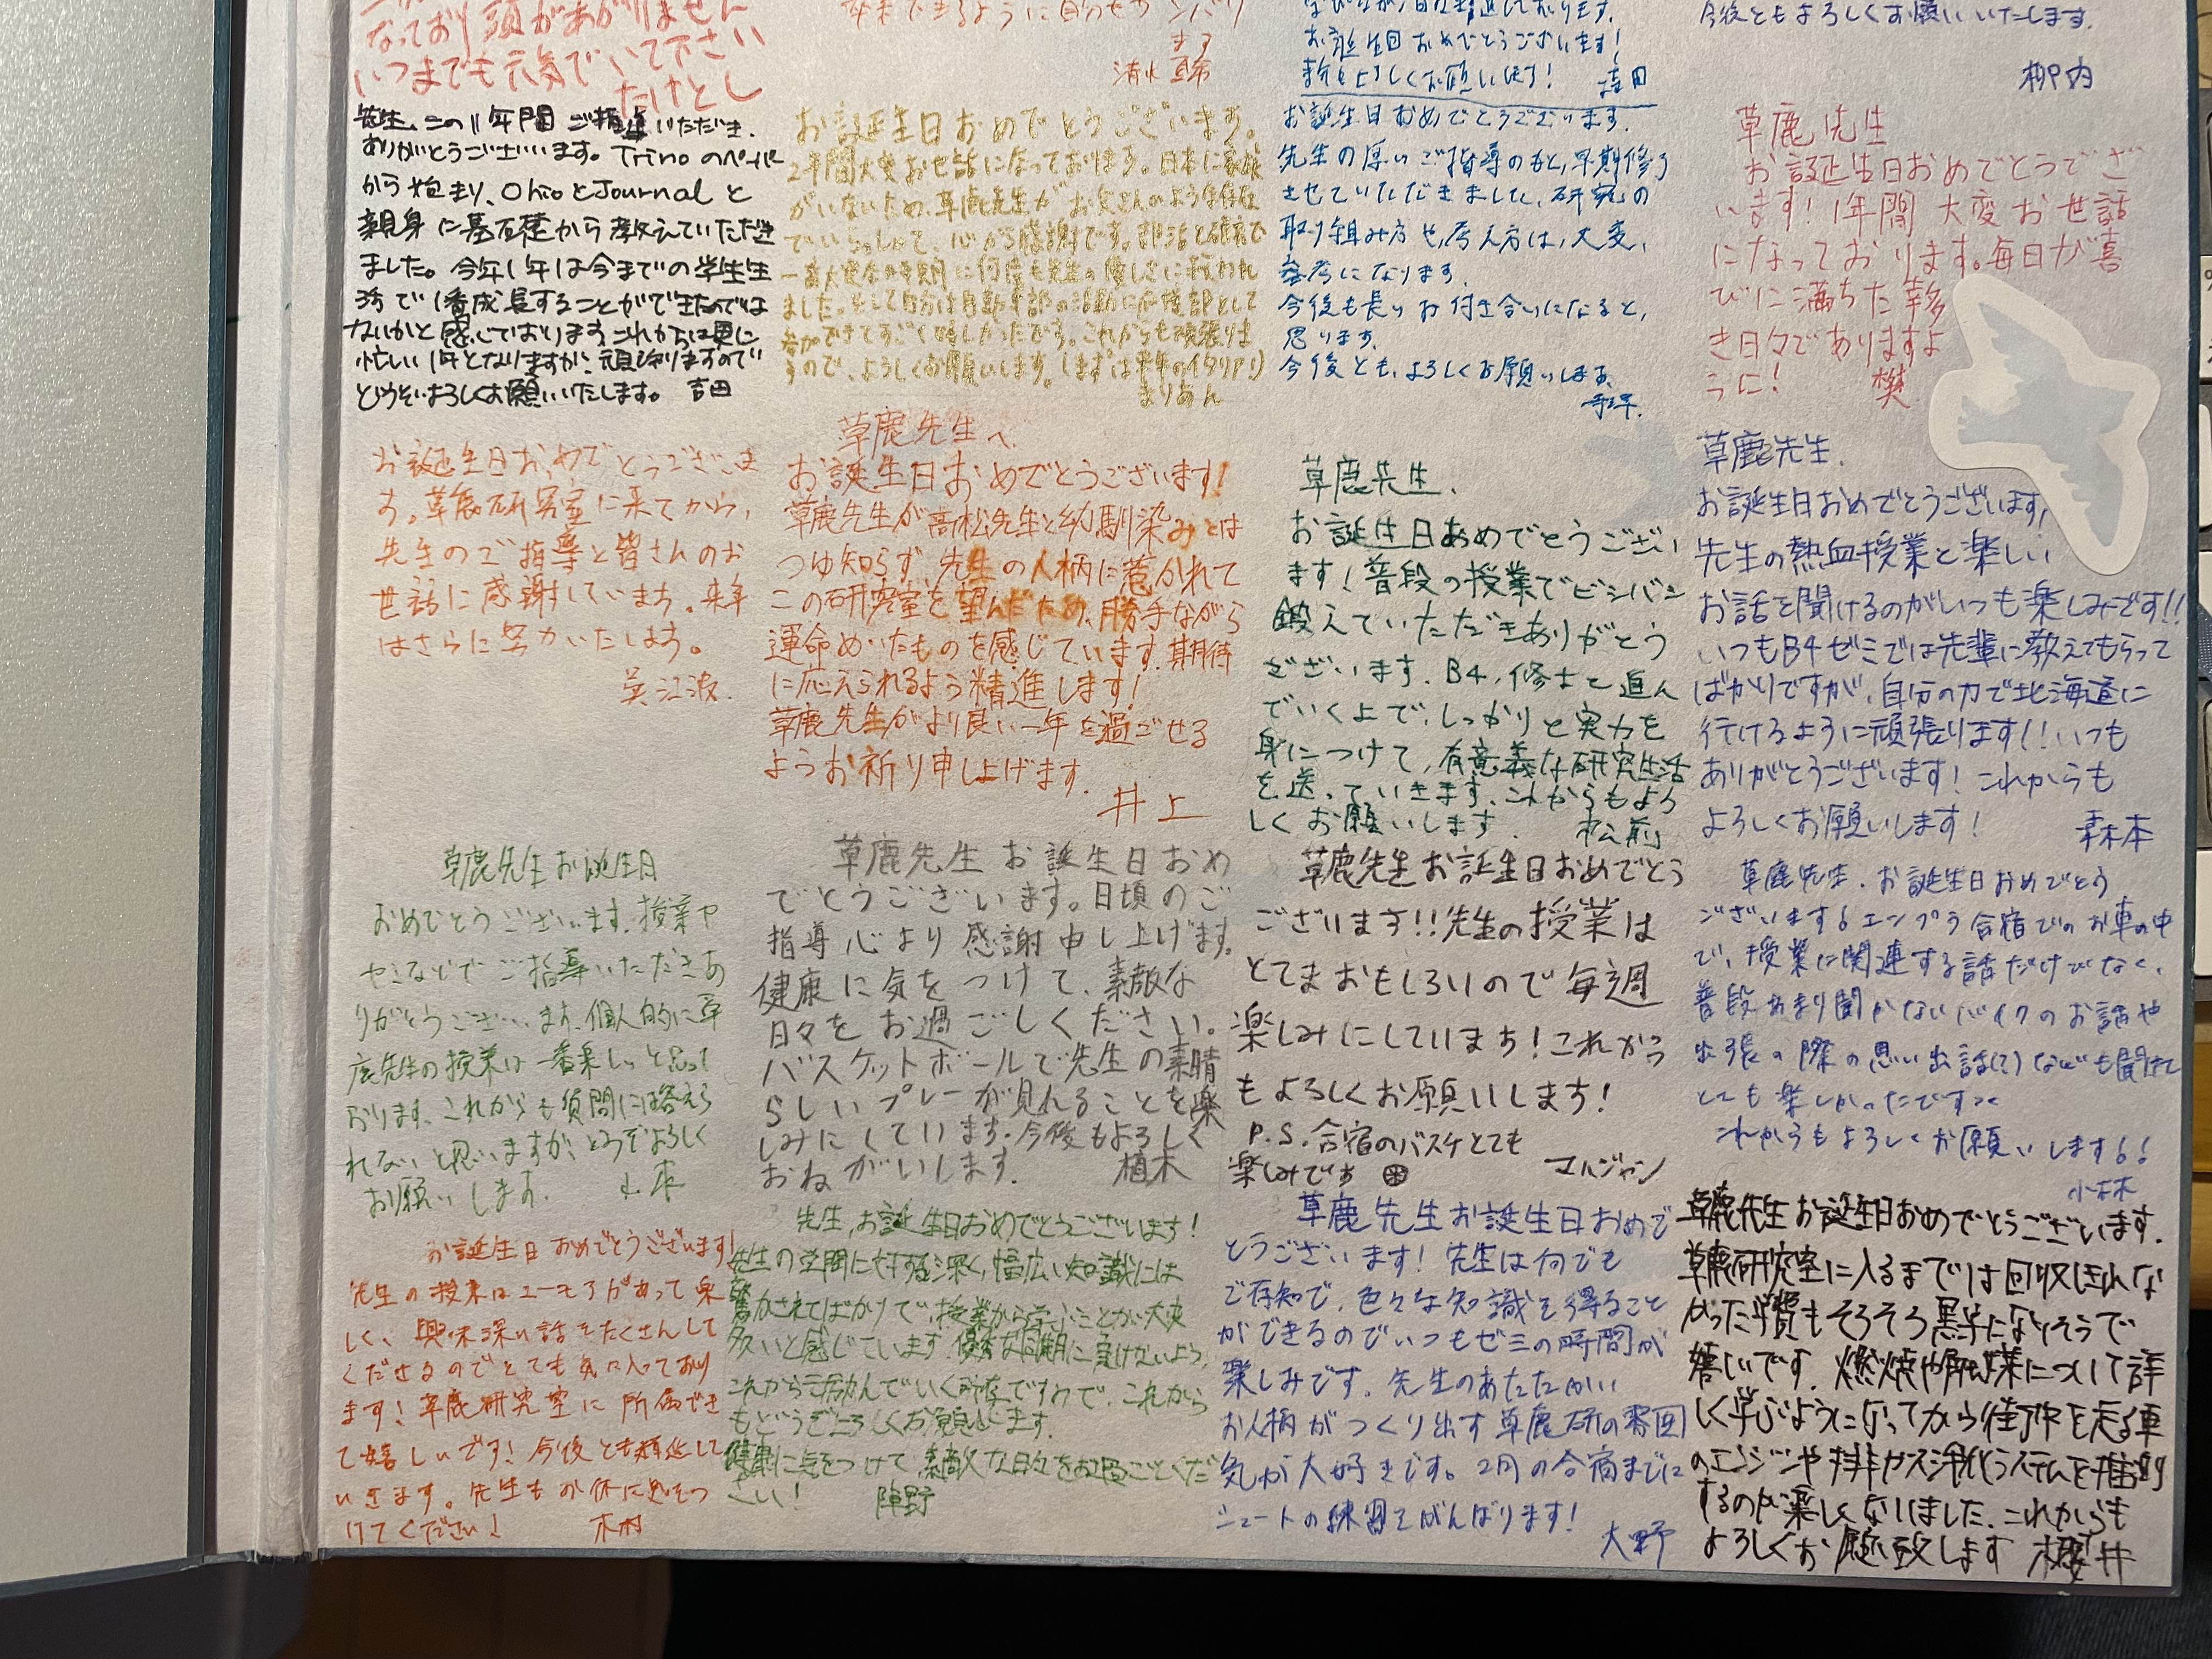 なっており頭があがりません
いつまでも元気でいて下さい
たけとし
清水
お誕生日おめでとうございます!
よろしくお願いします!
今後ともよろしくお願いいたします。
柳内
先生、この1年間ご指導いただき、
ありがとうございます。Trinoのペーパー
から始まり、OhioとJournalと
親身に基礎から教えていただき
ました。今年1年は今までの学生生
活で1番成長することができたのでは
ないかと感じております。これからは更に
忙しい1年となりますが、頑張りますので
どうぞよろしくお願いいたします。 吉田
お誕生日おめでとうございます。
2年間大変お世話になっております。日本に家族
がいないため、草鹿先生がお父さんのような存在
でいらっしゃって、心から感謝です。部活と研究で
一番大変な時期に何度も先生の優しさに救われ
ました。そして自分は自動車部の活動に応援部として
参加できてすごく嬉しかったです。これからも頑張りま
すので、よろしくお願いします。(まずは来年のイタリア!)
まりあん
お誕生日おめでとうございます。
先生の厚いご指導のもと、早期修了
させていただきました。研究の
取り組み方や、考え方は、大変、
参考になります。
今後も長いお付き合いになると、
思います。
今後とも、よろしくお願いします。
草鹿先生
お誕生日おめでとうござ
います!1年間大変お世話
になっております。毎日が喜
びに満ちた幸多
き日々でありますよ
うに! 樊
お誕生日おめでとうございま
す。草鹿研究室に来てから、
先生のご指導と皆さんのお
世話に感謝しています。来年
はさらに努力いたします。
呉江波
草鹿先生へ
お誕生日おめでとうございます!
草鹿先生が高松先生と幼馴染みとは
つゆ知らず、先生の人柄に惹かれて
この研究室を望んだため、勝手ながら
運命めいたものを感じています。期待
に応えられるよう精進します!
草鹿先生がより良い一年を過ごせる
ようお祈り申し上げます。
井上
草鹿先生、
お誕生日おめでとうござい
ます!普段の授業でビシバシ
鍛えていただきありがとう
ございます。B4、修士と進ん
でいく上で、しっかりと実力を
身につけて、有意義な研究生活
を送っていきます。これからもよろ
しくお願いします。 松前
草鹿先生、
お誕生日おめでとうございます。
先生の熱血授業と楽しい
お話を聞けるのがいつも楽しみです!!
いつもB4ゼミでは先輩に教えてもらって
ばかりですが、自分の力で北海道に
行けるように頑張ります!!いつも
ありがとうございます!これからも
よろしくお願いします! 森本
草鹿先生お誕生日
おめでとうございます。授業や
ゼミなどでご指導いただきあ
りがとうございます。個人的に草
鹿先生の授業は一番楽しいと思って
おります。これからも質問には答えら
れないと思いますが、どうぞよろしく
お願いします。
草鹿先生お誕生日おめ
でとうございます。日頃のご
指導心より感謝申し上げます。
健康に気をつけて、素敵な
日々をお過ごしください。
バスケットボールで先生の素晴
らしいプレーが見れることを楽
しみにしています。今後もよろしく
おねがいします。 植木
草鹿先生お誕生日おめでとう
ございます!!先生の授業は
とてもおもしろいので毎週
楽しみにしています!これから
もよろしくお願いします!
P.S.合宿のバスケとても
楽しみです マルジャン
草鹿先生、お誕生日おめでとう
ございます!エンプラ合宿でのお車の中
で、授業に関連する話だけでなく、
普段あまり聞かないバイクのお話や
出張の際の思い出話(?)なども聞けて
とても楽しかったです
これからもよろしくお願いします!!
小林
お誕生日おめでとうございます!
先生の授業はユーモアがあって楽
しく、興味深い話をたくさんして
くださるのでとても気に入っており
ます!草鹿研究室に所属でき
て嬉しいです!今後とも精進して
いきます。先生もお体に気をつ
けてください! 木村
先生、お誕生日おめでとうございます!
先生の学問に対する深く、幅広い知識には
驚かされてばかりで、授業から学ぶことが大変
多いと感じています。優秀な同期に負けないよう、
これから励んでいく所存ですので、これから
もどうぞよろしくお願いします。
健康に気をつけて素敵な日々をお過ごしくだ
さい! 陣野
草鹿先生お誕生日おめで
とうございます!先生は何でも
ご存知で、色々な知識を得ること
ができるのでいつもゼミの時間が
楽しみです。先生のあたたかい
お人柄がつくり出す草鹿研の雰囲
気が大好きです。2月の合宿までに
シュートの練習をがんばります!
大野
草鹿先生お誕生日おめでとうございます。
草鹿研究室に入るまでは回収しきれな
かった学費もそろそろ黒字になりそうで
嬉しいです。燃焼や触媒について詳
しく学ぶようになってから街中を走る車
のエンジンや排ガス浄化システムを推測
するのが楽しくなりました。これからも
よろしくお願い致します 櫻井